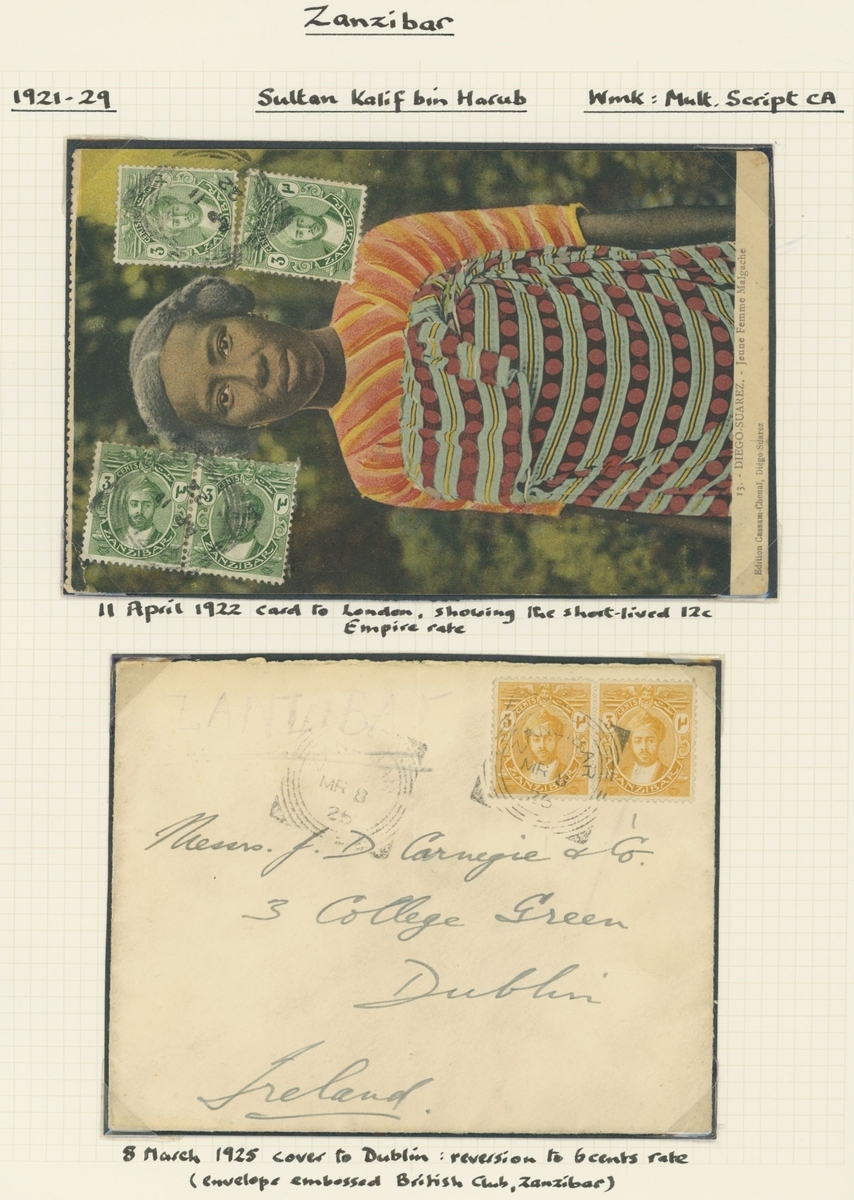 Zanzibar
1921-29 Sultan Kalif bin Harub Wmk: Mult. Script CA
3 CENTS ٣
ZANZIBAR
3 CENTS ٣
ZANZIBAR
3 CENTS ٣
ZANZIBAR
3 CENTS ٣
ZANZIBAR
13. - DIEGO-SUAREZ. - Jeune Femme Malgache
Edition Cassam-Chenaï, Diégo-Suarez
11 April 1922 card to London, showing the short-lived 12c
Empire rate
ZANZIBAR
3 CENTS ٣
ZANZIBAR
3 CENTS ٣
ZANZIBAR
MR 8
25
ZANZIBAR
MR 8
25
Messrs. J. D. Carnegie & Co.
3 College Green
Dublin
Ireland.
8 March 1925 cover to Dublin: reversion to 6 cents rate
(envelope embossed British Club, Zanzibar)